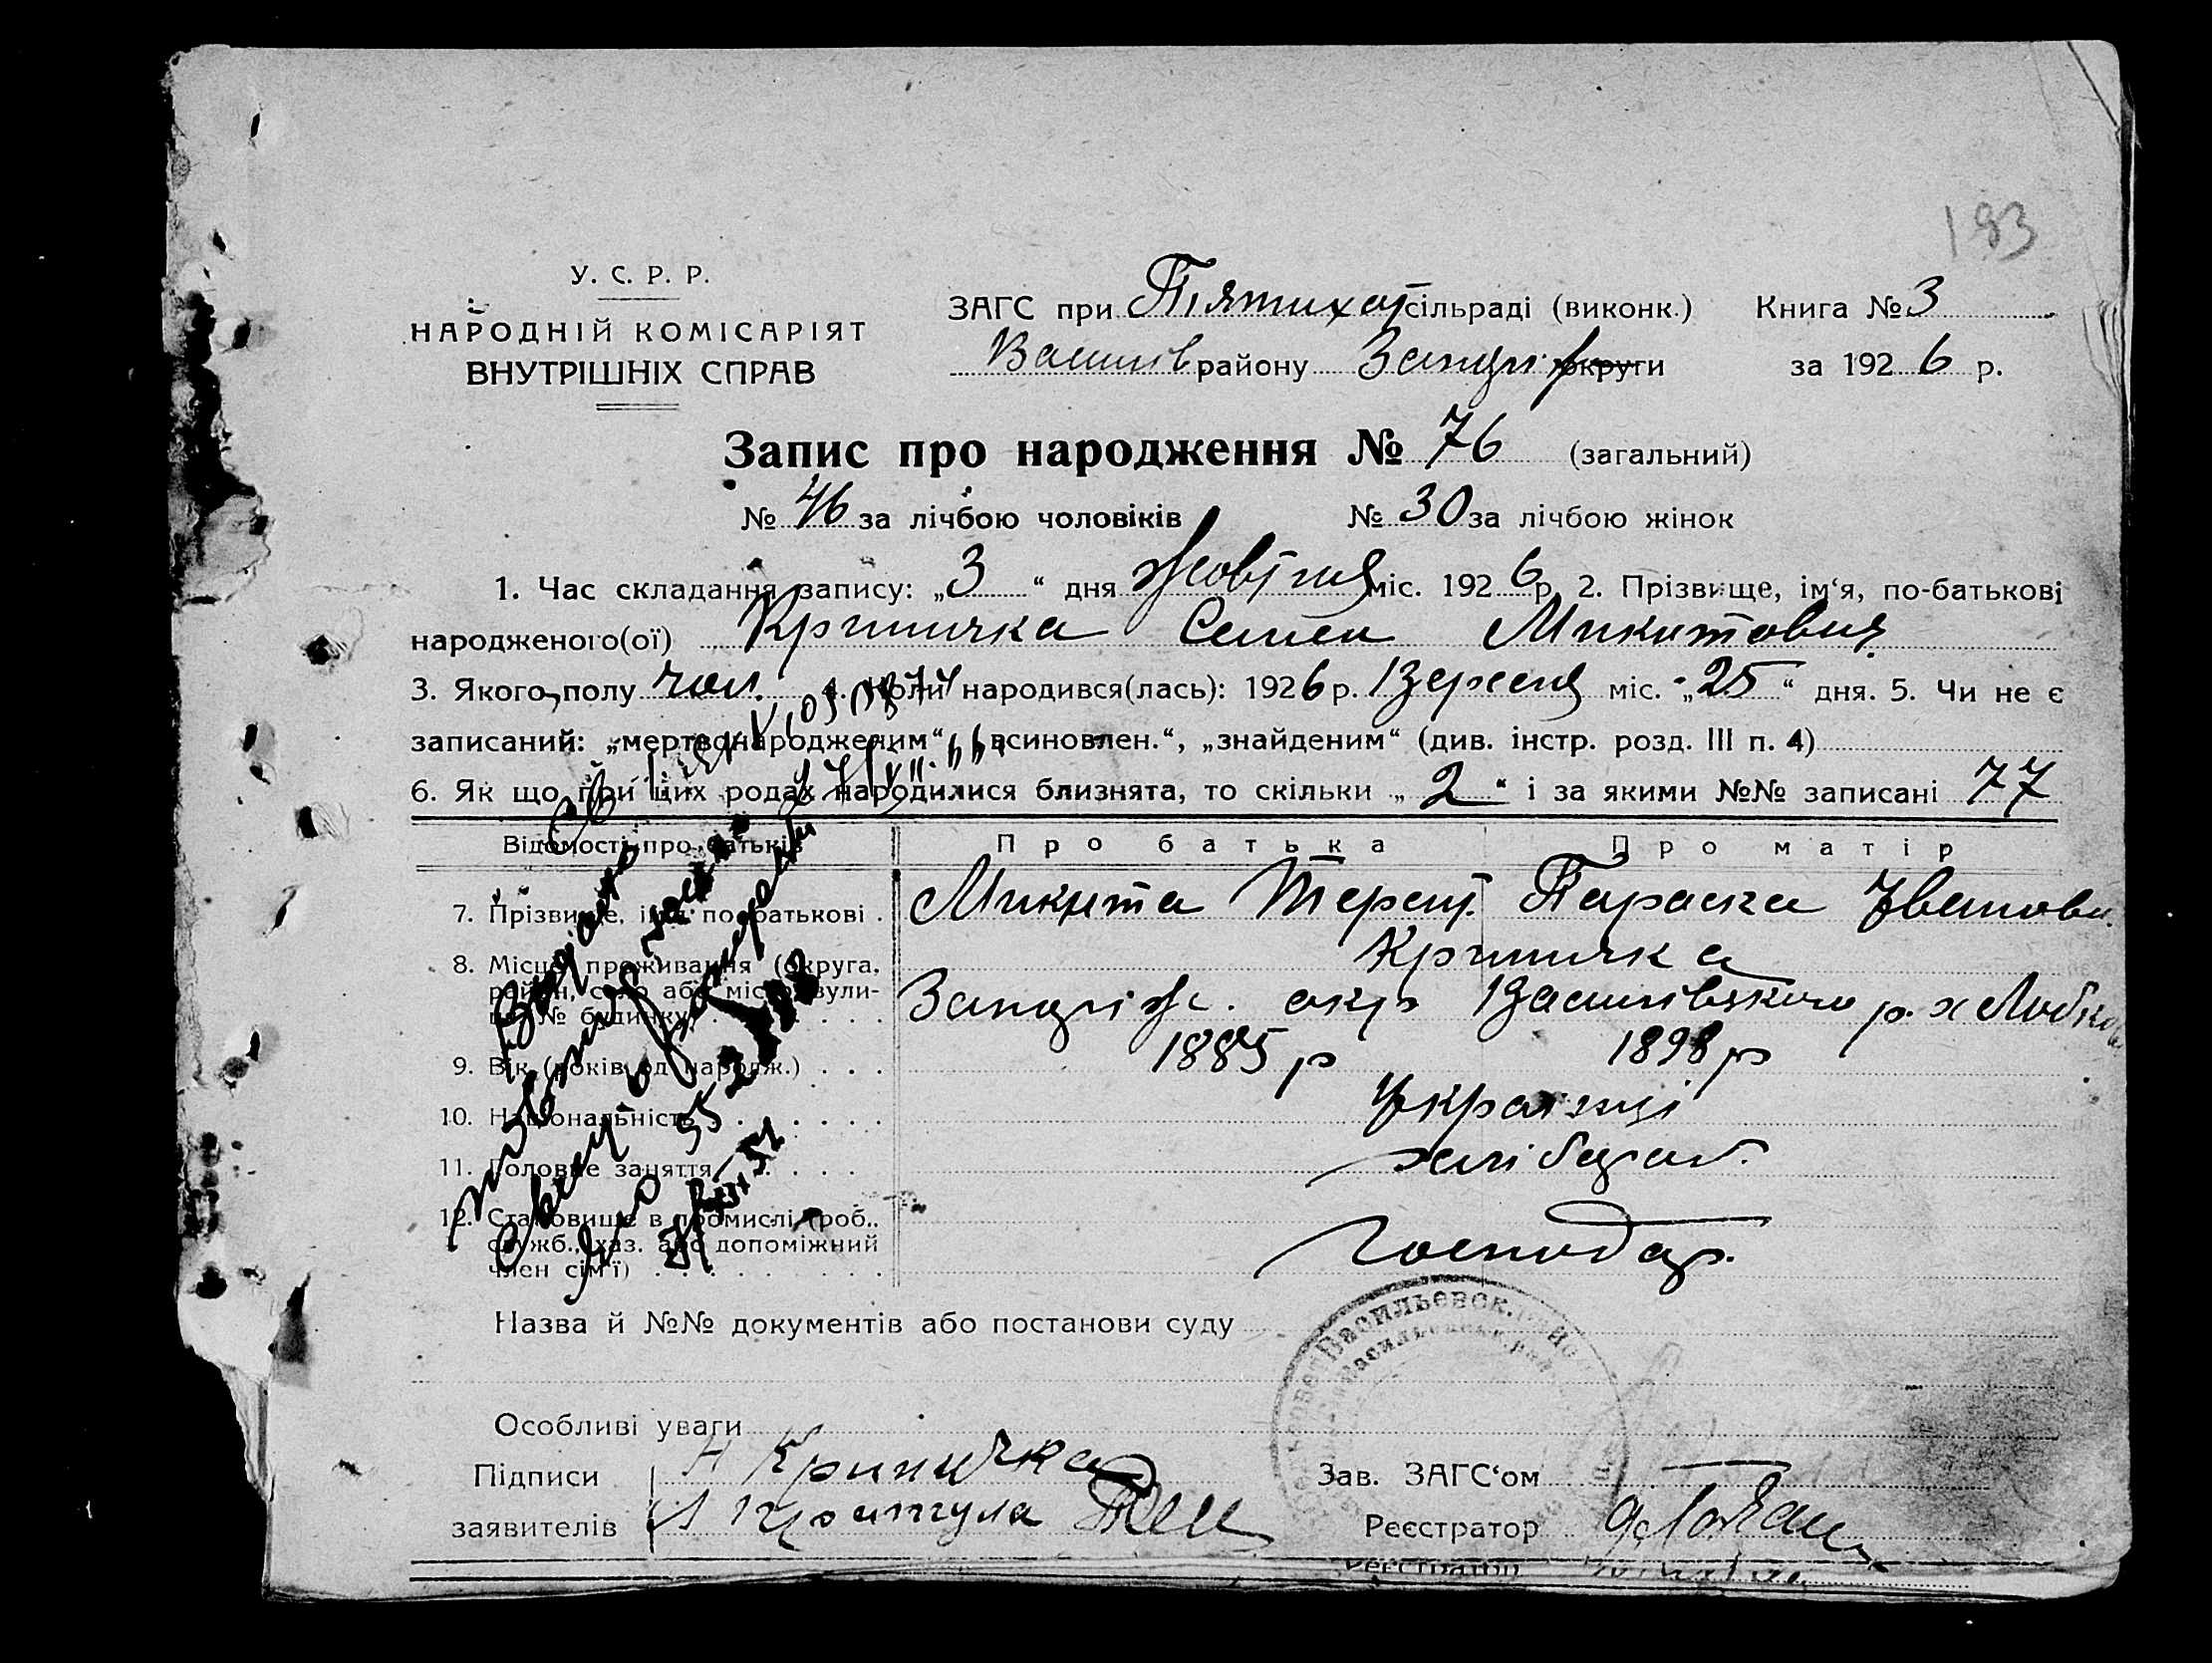 183
У. С. Р. Р.
НАРОДНІЙ КОМІСАРІЯТ
ВНУТРІШНІХ СПРАВ
ЗАГС при Пятихат сільраді (виконк.) Книга № 3
Василів району Запоріж округи за 1926 р.
Запис про народження № 76 (загальний)
№ 46 за лічбою чоловіків № 30 за лічбою жінок
1. Час складання запису: „3“ дня Жовтня міс. 1926 р. 2. Прізвище, ім‘я, по-батькові
народженого(ої) Криничка Семен Микитович
3. Якого полу чол. 4. Коли народився(лась): 1926 р. Вересня міс. „25“ дня. 5. Чи не є
записаний: „мертвонародженим“, „всиновлен.“, „знайденим“ (див. інстр. розд. III п. 4)
6. Як що при цих родах народилися близнята, то скільки „2“ і за якими №№ записані 77
Відомості про батьків Про батька Про матір
7. Прізвище, ім‘я, по-батькові . Микита Терент. Параска Іванови
Криничка
8. Місце проживання (округа,
район, село або місто, вули-
ця, № будинку) Запоріж. окр Василівського р. х Любк
9. Вік (років од народж.) . . . 1885 р 1898 р
10. Національність Українці
11. Головне заняття хлібороб.
12. Становище в промислі (роб.,
служб., хаз. або допоміжний
член сім‘ї) Господар.
Назва й №№ документів або постанови суду
Особливі уваги
Підписи Н Криничка
заявителів
Зав. ЗАГС‘ом
Реєстратор
Реєстратор